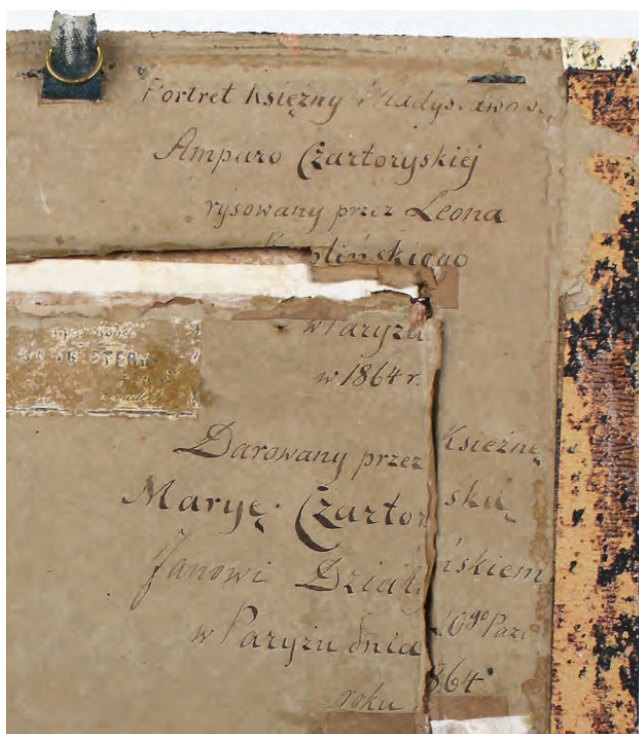 Portret Księżny Władysławow.
Amparo Czartoryskiej
rysowany przez Leona
plińskiego
w Paryżu
w 1864 r.
STERY
Darowany przez Księżnę
Maryę Czartor ską
Janowi Dział ńskiem
w Paryżu dnia 10go Paźi
roku 864